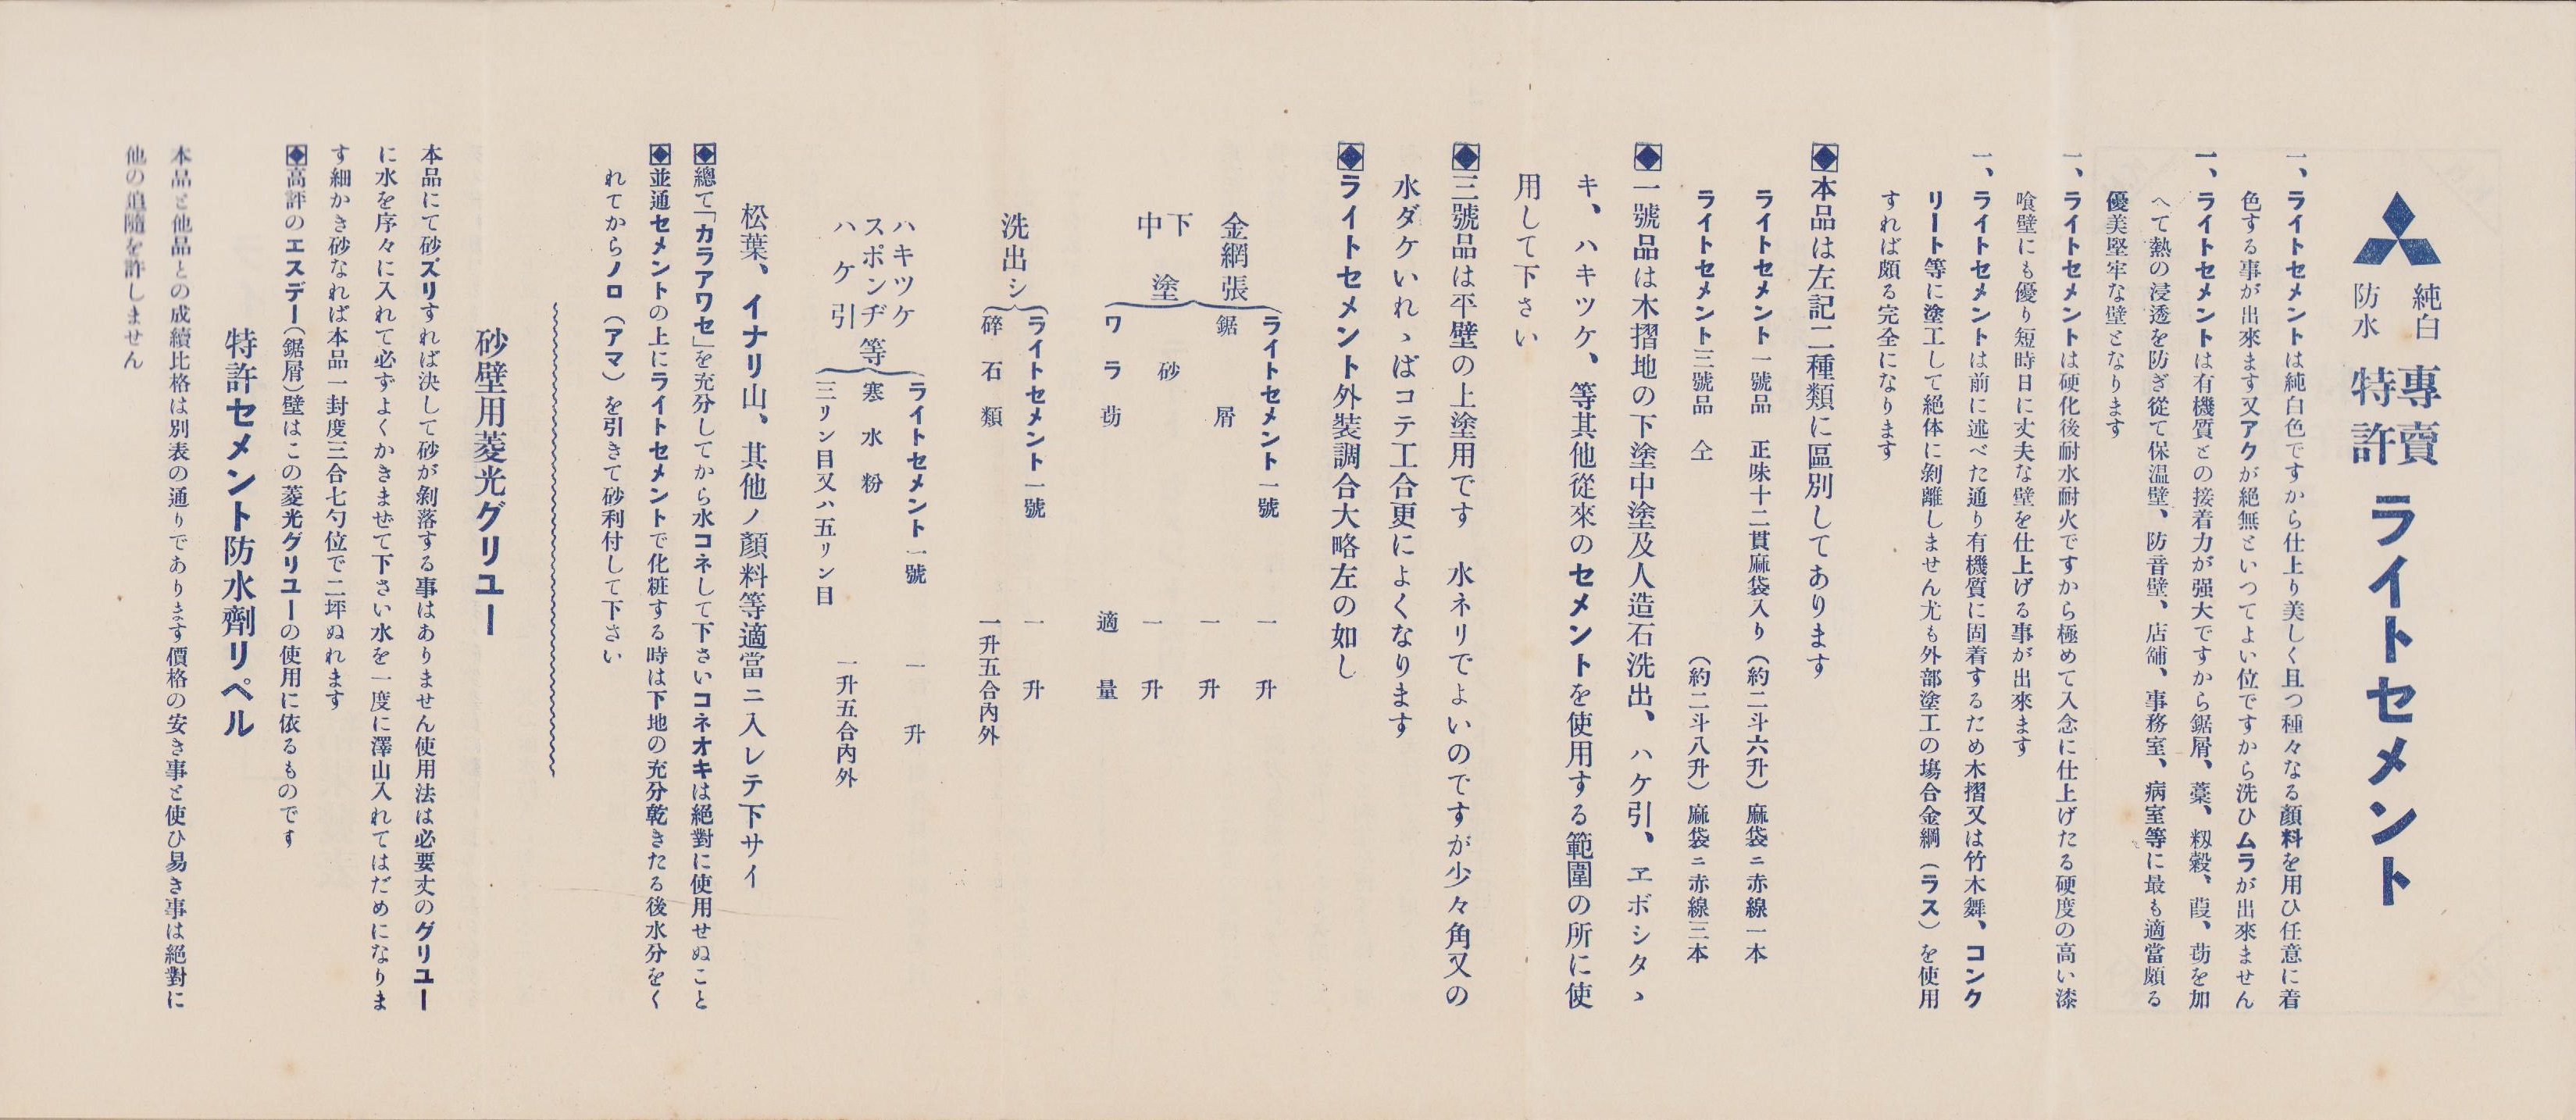 純白
防水
專賣
特許
ライトセメント
一、ライトセメントは純白色ですから仕上り美しく且つ種々なる顔料を用ひ任意に着
色する事が出來ます又アクが絶無といつてよい位ですから洗ひムラが出來ません
一、ライトセメントは有機質との接着力が强大ですから鋸屑、藁、籾糓、葭、苆を加
へて熱の浸透を防ぎ從て保温壁、防音壁、店舗、事務室、病室等に最も適當頗る
優美堅牢な壁となります
一、ライトセメントは硬化後耐水耐火ですから極めて入念に仕上げたる硬度の高い漆
喰壁にも優り短時日に丈夫な壁を仕上げる事が出來ます
一、ライトセメントは前に述べた通り有機質に固着するため木摺又は竹木舞、コンク
リート等に塗工して絶体に剝離しません尤も外部塗工の塲合金綱（ラス）を使用
すれば頗る完全になります
本品は左記二種類に區別してあります
ライトセメント一號品　正味十二貫麻袋入り（約二斗六升）麻袋ニ赤線一本
ライトセメント三號品　仝　（約二斗八升）麻袋ニ赤線三本
一號品は木摺地の下塗中塗及人造石洗出、ハケ引、ヱボシタヽ
キ、ハキツケ、等其他從來のセメントを使用する範圍の所に使
用して下さい
三號品は平壁の上塗用です　水ネリでよいのですが少々角又の
水ダケいれゝばコテ工合更によくなります
ライトセメント外裝調合大略左の如し
金網張
下
中
塗
ライトセメント一號　一升
鋸屑　一升
砂　一升
ワラ苆　適量
洗出シ
ライトセメント一號　一升
碎石類　一升五合內外
ハキツケ
スポンヂ等
ハケ引
ライトセメント一號　一升
寒水粉
三リン目又ハ五リン目　一升五合內外
松葉、イナリ山、其他ノ顔料等適當ニ入レテ下サイ
總て「カラアワセ」を充分してから水コネして下さいコネオキは絕對に使用せぬこと
並通セメントの上にライトセメントで化粧する時は下地の充分乾きたる後水分をく
れてからノロ（アマ）を引きて砂利付して下さい
砂壁用菱光グリユー
本品にて砂ズリすれば決して砂が剝落する事はありません使用法は必要丈のグリユー
に水を序々に入れて必ずよくかきまぜて下さい水を一度に澤山入れてはだめになりま
す細かき砂なれば本品一封度三合七勺位で二坪ぬれます
高評のエスデー（鋸屑）壁はこの菱光グリユーの使用に依るものです
特許セメント防水劑リペル
本品と他品との成績比格は別表の通りであります價格の安き事と使ひ易き事は絕對に
他の追隨を許しません